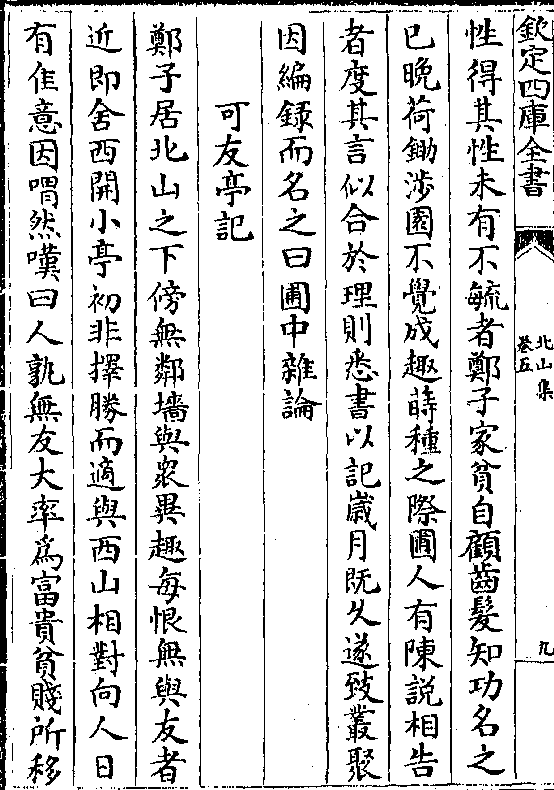 欽定四庫全書
北山集
卷五
九
性得其性未有不毓者鄭子家貧自顧齒髮知功名之
已晚荷鋤涉園不覺成趣蒔種之際圃人有陳說相告
者度其言似合於理則悉書以記歲月既久遂致叢聚
因編録而名之曰圃中雜論
可友亭記
鄭子居北山之下傍無鄰墻與衆異趣每恨無與友者
近即舍西開小亭初非擇勝而適與西山相對向人日
有佳意因喟然嘆曰人孰無友大率為富貴貧賤所移